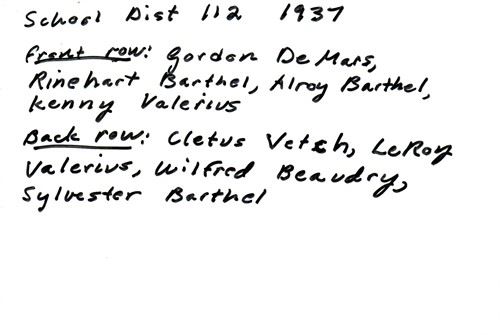 School Dist 112 1937
Front row: Gordon DeMars,
Rinehart Barthel, Alroy Barthel,
Kenny Valerius
Back row: Cletus Vetsch, LeRoy
Valerius, Wilfred Beaudry,
Sylvester Barthel